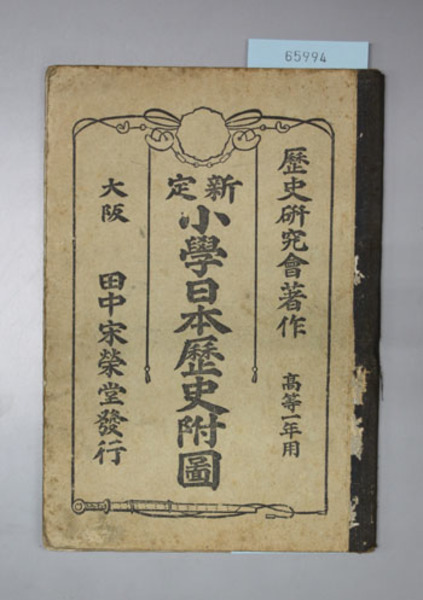 65994
歷史硏究會著作
高等一年用
新定
小學日本歷史附圖
大阪
田中宋榮堂發行